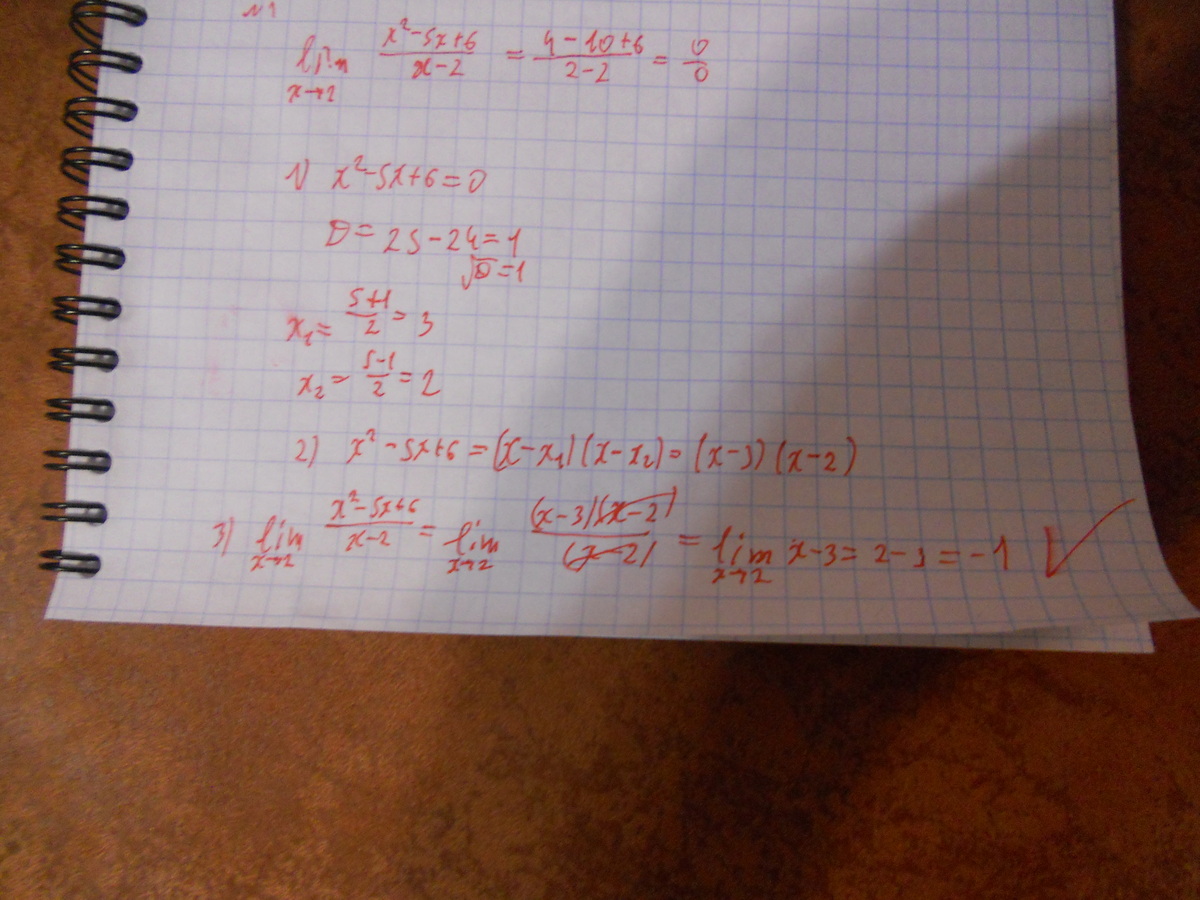 №1
lim x→2 (x²-5x+6)/(x-2) = (4-10+6)/(2-2) = 0/0
1) x²-5x+6=0
D=25-24=1
√D=1
x₁= (5+1)/2 = 3
x₂= (5-1)/2 = 2
2) x²-5x+6=(x-x₁)(x-x₂)=(x-3)(x-2)
3) lim x→2 (x²-5x+6)/(x-2) = lim x→2 (x-3)(x-2)/(x-2) = lim x→2 x-3=2-3=-1